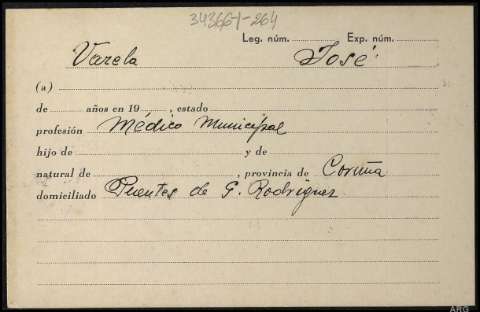 34366-1-264
Leg. núm. Exp. núm.
Varela José
(a)
de años en 19 , estado
profesión Médico Municipal
hijo de y de
natural de , provincia de Coruña
domiciliado Puentes de G. Rodriguez
ARG